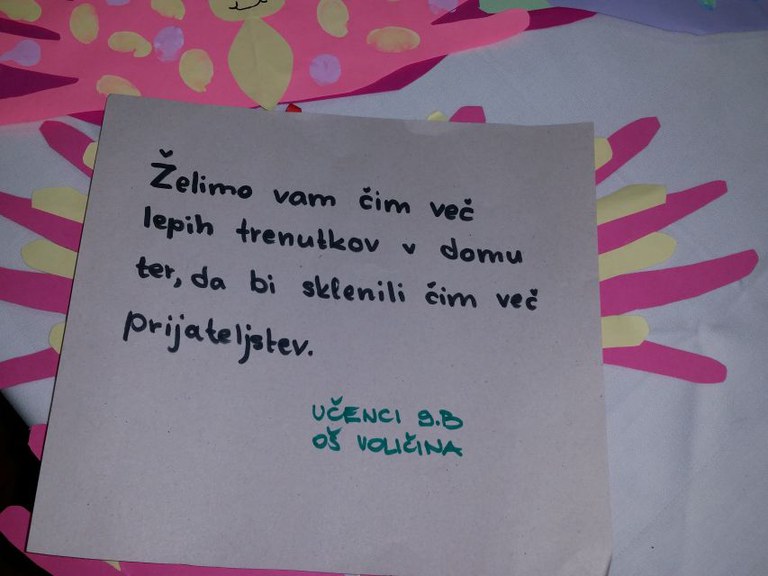 Želimo vam čim več
lepih trenutkov v domu
ter, da bi sklenili čim več
prijateljstev.
UČENCI 9.B
OŠ VOLIČINA